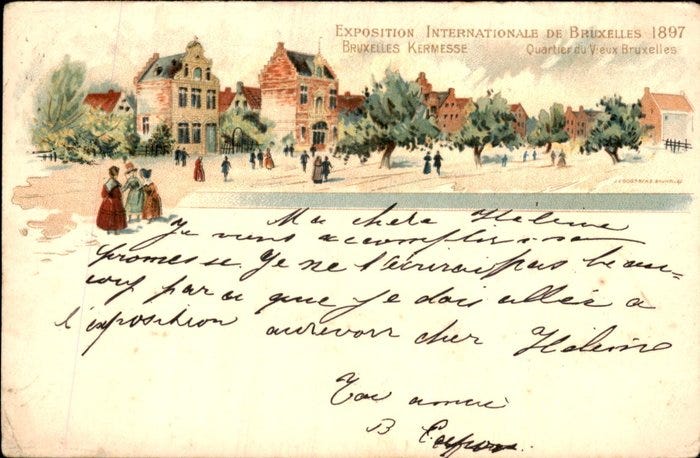 EXPOSITION INTERNATIONALE DE BRUXELLES 1897
BRUXELLES KERMESSE Quartier du Vieux Bruxelles
Ma chere Helene
Je viens accomplir ma
promesse. Je ne t'ecrirai pas beau-
coup parce que je dois allée a
l'exposition aurevoir cher Helene
Ton amie
B